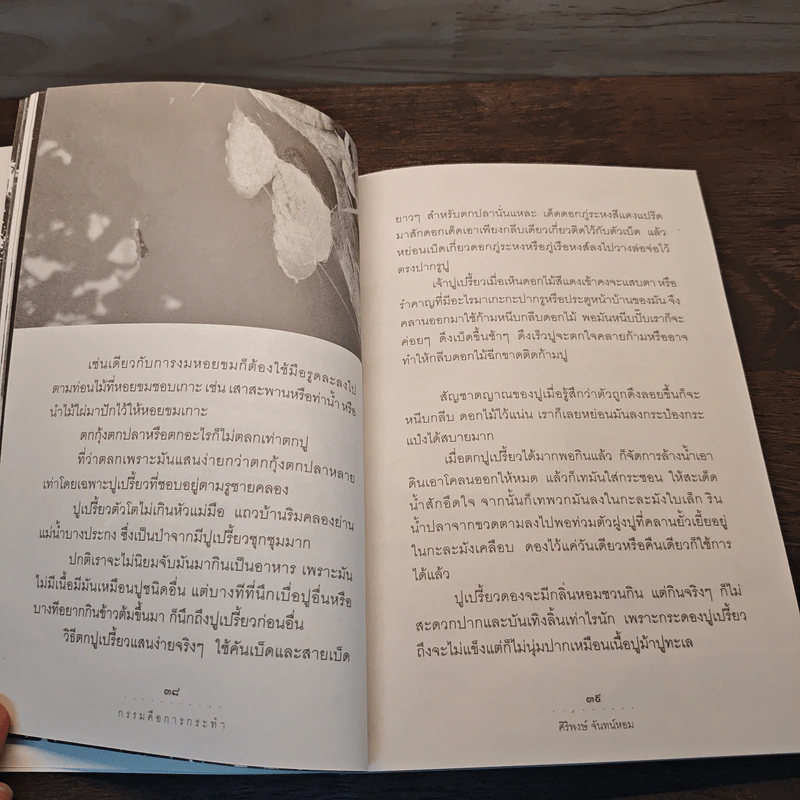 เช่นเดียวกับการงมหอยขมก็ต้องใช้มือรูดละลงไป
ตามท่อนไม้ที่หอยขมชอบเกาะ เช่น เสาสะพานหรือท่าน้ำ หรือ
นำไม้ไผ่มาปักไว้ให้หอยขมเกาะ
ตกกุ้งตกปลาหรือตกอะไรก็ไม่ตลกเท่าตกปู
ที่ว่าตลกเพราะมันแสนง่ายกว่าตกกุ้งตกปลาหลาย
เท่าโดยเฉพาะปูเปรี้ยวที่ชอบอยู่ตามรูชายคลอง
ปูเปรี้ยวตัวโตไม่เกินหัวแม่มือ แถวบ้านริมคลองย่าน
แม่น้ำบางประกง ซึ่งเป็นป่าจากมีปูเปรี้ยวชุกชุมมาก
ปกติเราจะไม่นิยมจับมันมากินเป็นอาหาร เพราะมัน
ไม่มีเนื้อมีมันเหมือนปูชนิดอื่น แต่บางทีที่นึกเบื่อปูอื่นหรือ
บางทีอยากกินข้าวต้มขึ้นมา ก็นึกถึงปูเปรี้ยวก่อนอื่น
วิธีตกปูเปรี้ยวแสนง่ายจริงๆ ใช้คันเบ็ดและสายเบ็ด
๓๘
กรรมคือการกระทำ
ยาวๆ สำหรับตกปลานั่นแหละ เด็ดดอกภู่ระหงสีแดงแปร๊ด
มาสักดอกเด็ดเอาเพียงกลีบเดียวเกี่ยวติดไว้กับตัวเบ็ด แล้ว
หย่อนเบ็ดเกี่ยวดอกภู่ระหงหรือภู่เรือหงส์ลงไปวางล่อจ่อไว้
ตรงปากรูปู
เจ้าปูเปรี้ยวเมื่อเห็นดอกไม้สีแดงเข้าคงจะแสบตา หรือ
รำคาญที่มีอะไรมาเกะกะปากรูหรือประตูหน้าบ้านของมัน จึง
คลานออกมาใช้ก้ามหนีบกลีบดอกไม้ พอมันหนีบปั๊บเราก็จะ
ค่อยๆ ดึงเบ็ดขึ้นช้าๆ ดึงเร็วปูจะตกใจคลายก้ามหรืออาจ
ทำให้กลีบดอกไม้ฉีกขาดติดก้ามปู
สัญชาตญาณของปูเมื่อรู้สึกว่าตัวถูกดึงลอยขึ้นก็จะ
หนีบกลีบ ดอกไม้ไว้แน่น เราก็เลยหย่อนมันลงกระป๋องกระ
แป๋งได้สบายมาก
เมื่อตกปูเปรี้ยวได้มากพอกินแล้ว ก็จัดการล้างน้ำเอา
ดินเอาโคลนออกให้หมด แล้วก็เทมันใส่กระชอน ให้สะเด็ด
น้ำสักอึดใจ จากนั้นก็เทพวกมันลงในกะละมังใบเล็ก ริน
น้ำปลาจากขวดตามลงไปพอท่วมตัวฝูงปูที่คลานยั้วเยี้ยอยู่
ในกะละมังเคลือบ ดองไว้แค่วันเดียวหรือคืนเดียวก็ใช้การ
ได้แล้ว
ปูเปรี้ยวดองจะมีกลิ่นหอมชวนกิน แต่กินจริงๆ ก็ไม่
สะดวกปากและบันเทิงลิ้นเท่าไรนัก เพราะกระดองปูเปรี้ยว
ถึงจะไม่แข็งแต่ก็ไม่นุ่มปากเหมือนเนื้อปูม้าปูทะเล
๓๙
ศิริพงษ์ จันทน์หอม